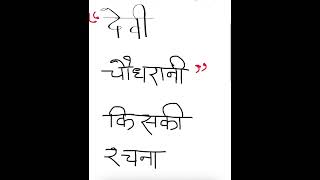 “देवी
चौधरानी”
किसकी
रचना